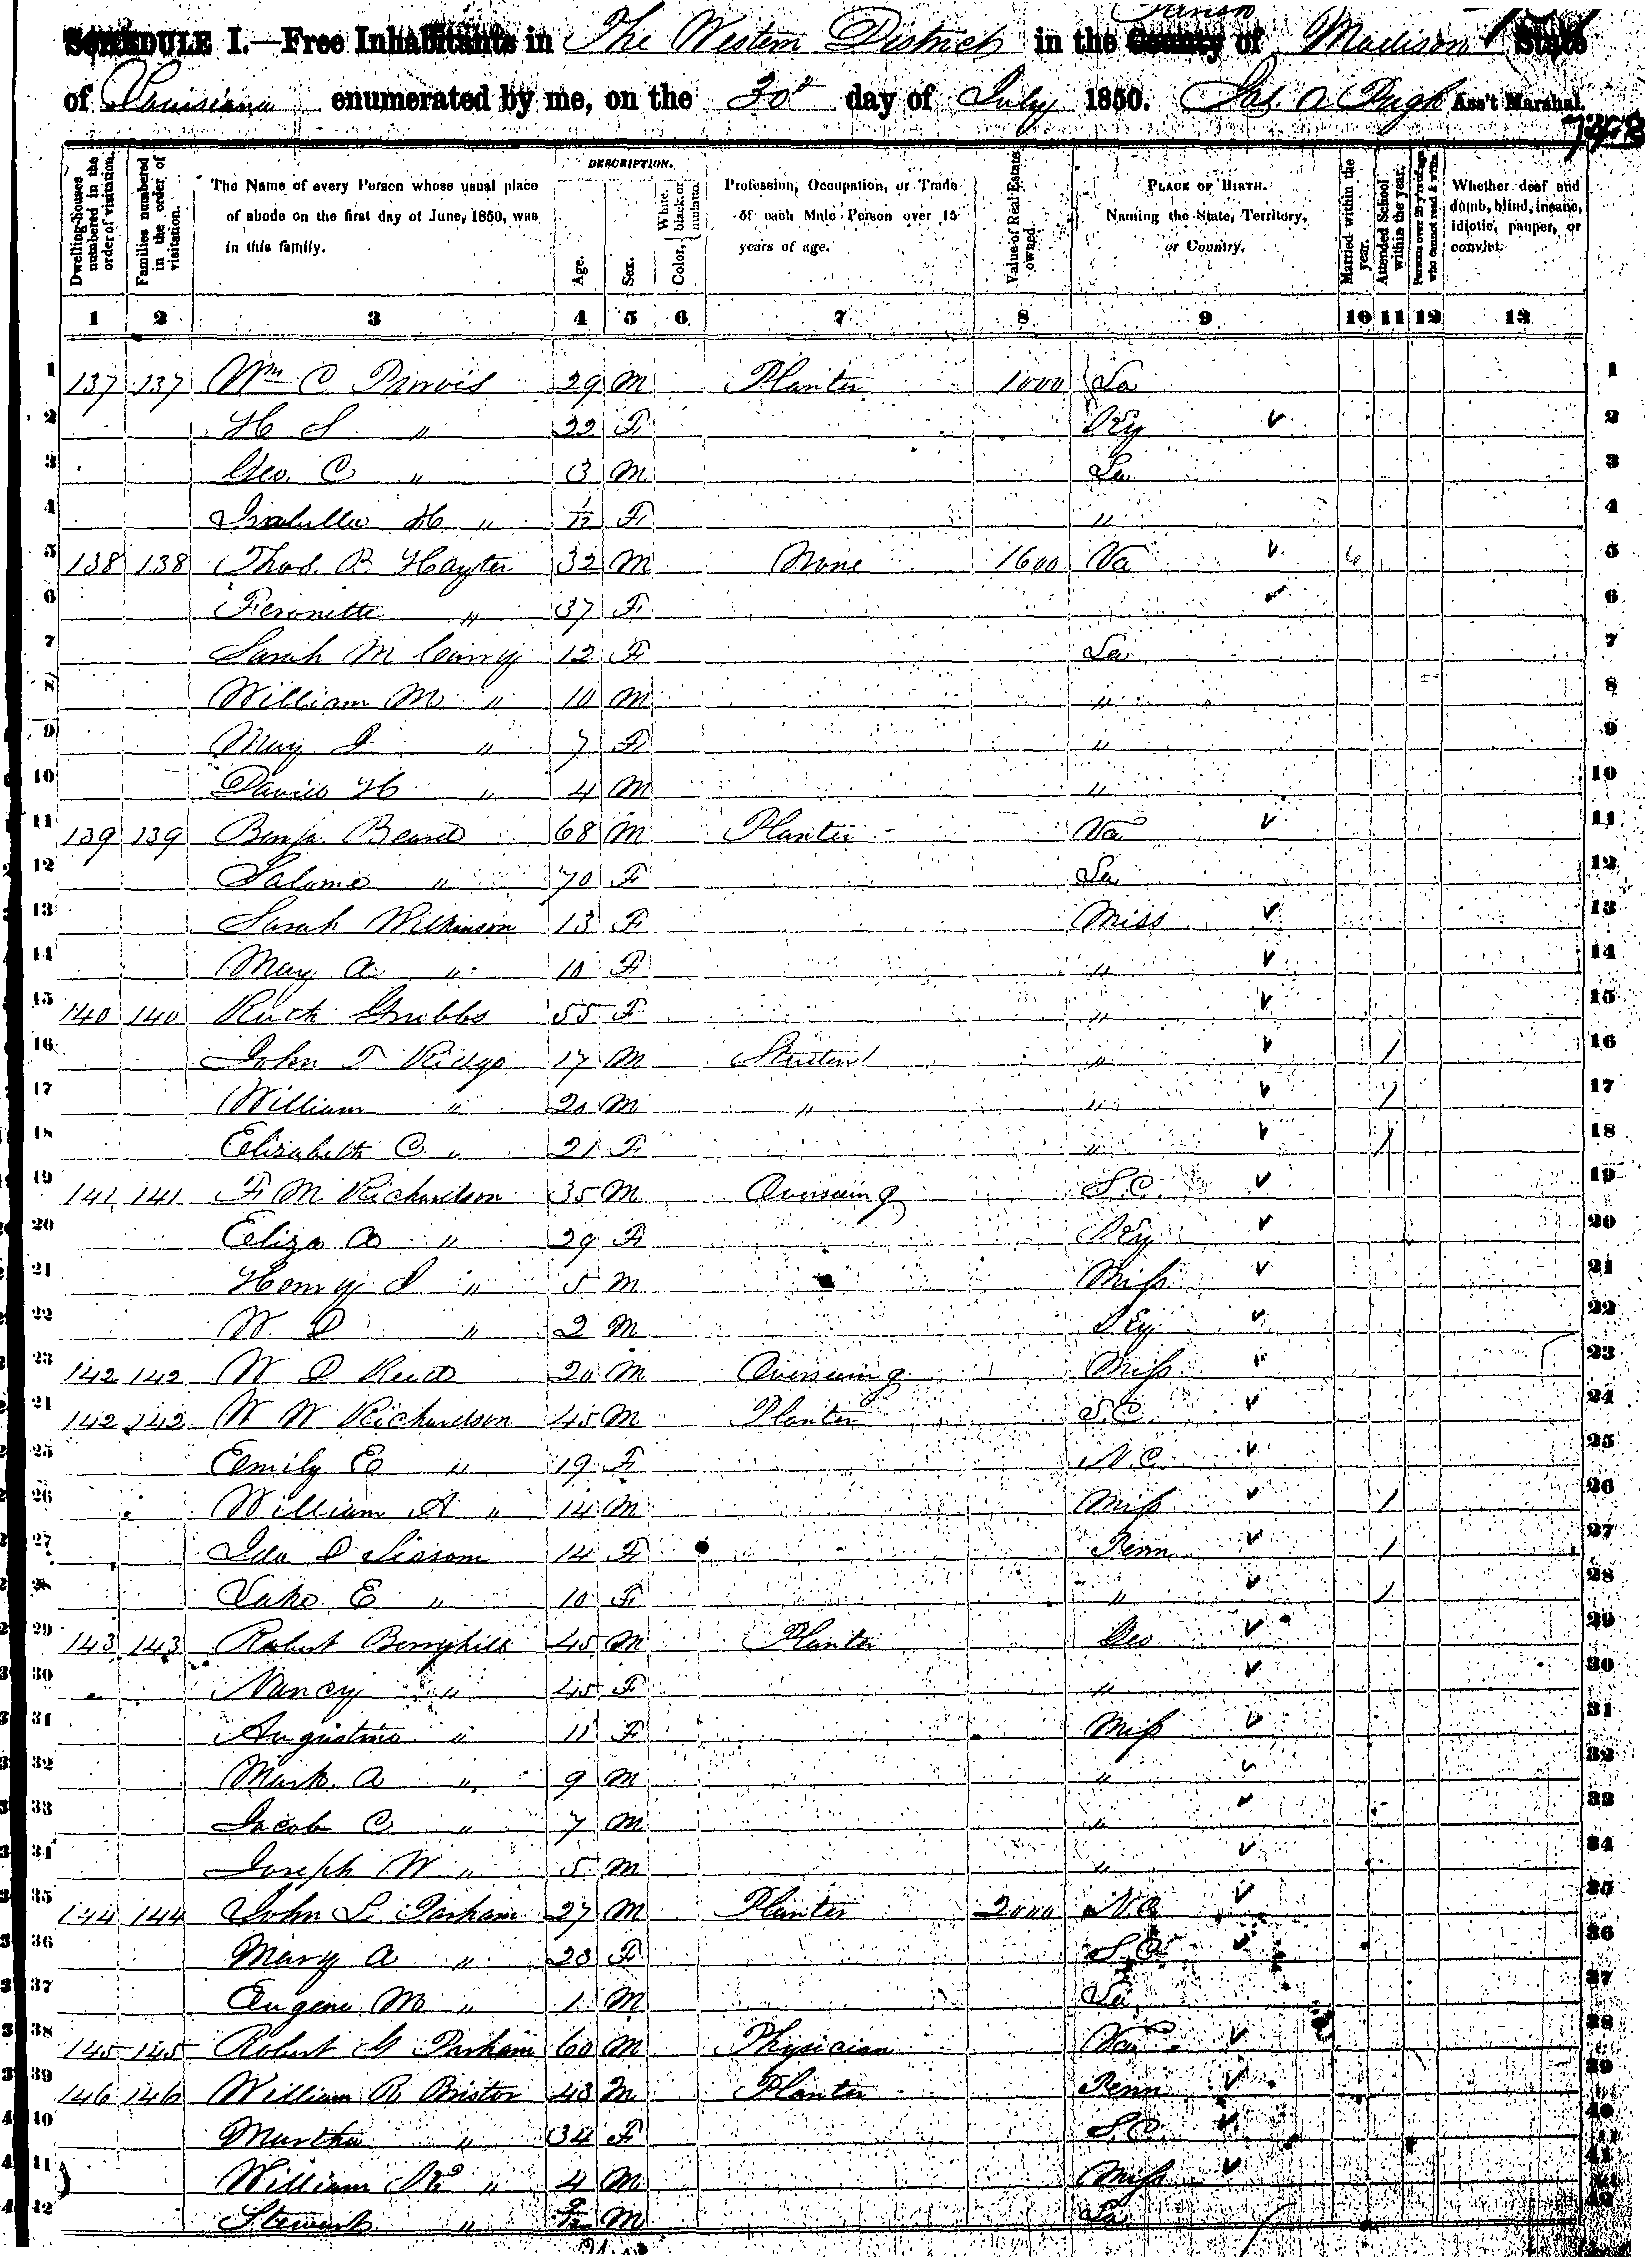 Parish
SCHEDULE I.—Free Inhabitants in The Western District in the County of Madison State
of Louisiana enumerated by me, on the 30th day of July 1850. Jas. A Pugh Ass't Marshal.
Dwelling-houses numbered in the order of visitation.
Families numbered in the order of visitation.
The Name of every Person whose usual place of abode on the first day of June, 1850, was in this family.
DESCRIPTION.
Age.
Sex.
Color, White, black or mulatto.
Profession, Occupation, or Trade of each Male Person over 15 years of age.
Value of Real Estate owned.
PLACE OF BIRTH. Naming the State, Territory, or Country.
Married within the year.
Attended School within the year.
Persons over 20 y'rs of age who cannot read & write.
Whether deaf and dumb, blind, insane, idiotic, pauper, or convict.
1 2 3 4 5 6 7 8 9 10 11 12 13
1 137 137 Wm C Purvis 29 M Planter 1000 La 1
2 H S " 22 F Ky 2
3 Geo. C " 3 M La 3
4 Isabella H " 1/12 F " 4
5 138 138 Thos. R Hayter 32 M None 1600 Va 5
6 Feronette " 37 F 6
7 Sarah M Curry 12 F La 7
8 William M " 10 M " 8
9 Mary " 7 F " 9
10 David H " 4 M " 10
11 139 139 Benja. Beard 68 M Planter Va 11
12 Salome " 70 F La 12
13 Sarah Wilkinson 13 F Miss 13
14 Mary A " 10 F " 14
15 140 140 Ruth Grubbs 55 F " 15
16 John T Ridge 17 M Student " 1 16
17 William " 20 M " " 1 17
18 Elizabeth C " 21 F " 1 18
19 141 141 F. M Richardson 35 M Overseeing S.C. 19
20 Eliza A " 29 F Ky 20
21 Henry " 5 M Miss 21
22 W. D " 2 M Ky 22
23 142 142 W D 20 M Overseeing Miss 23
24 142 142 W W Richardson 45 M Planter S.C. 24
25 Emily E " 19 F N.C. 25
26 William A " 14 M Miss 1 26
27 Ida D Sissom 14 F Penn 1 27
28 E " 10 F " 1 28
29 143 143 Robert Berryhill 45 M Planter Geo 29
30 Nancy " 45 F " 30
31 Augustine " 11 F Miss 31
32 Mark A " 9 M " 32
33 Jacob C " 7 M " 33
34 Joseph W " 5 M " 34
35 144 144 John L. Parham 27 M Planter 2000 N.C 35
36 Mary A " 20 F S.C. 36
37 Eugene M " 1 M La 37
38 145 145 Robert G Parham 60 M Physician Va 38
39 146 146 William R Bristor 43 M Planter Penn 39
40 Martha " 34 F S.C. 40
41 William " 4 M Miss 41
42 Stewart " M La 42